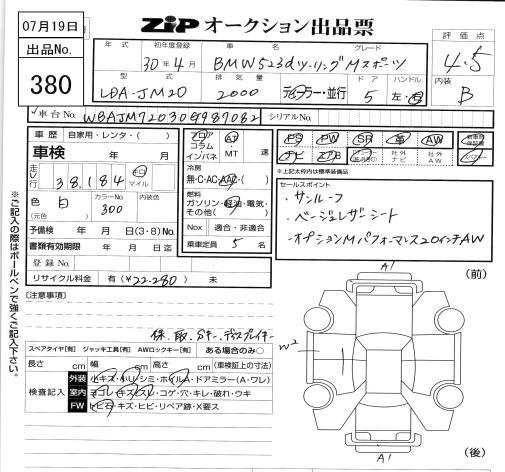 07月19日
出品No.
380
ZIP オークション出品票
評価点
4.5
内装
B
年式 初年度登録 車名 グレード
30年4月 BMW523dツーリングMスポーツ
型式 排気量 ドア ハンドル
LDA-JM20 2000 ディーラー・並行 5 左・右
車台No. WBAJM72030G987082 シリアルNo.
車歴 自家用・レンタ・( )
車検 年 月
走行 38,184 キロ マイル
色 白 カラーNo. 300 内装色
(元色)
予備検 年 月 日(3・8)No.
書類有効期限 年 月 日迄
登録No.
リサイクル料金 有(¥22,280) 未
フロア コラム インパネ AT・MT 速
冷房
無・C・AC・AAC・( )
燃料
ガソリン・軽油・電気・その他( )
Nox 適合・非適合
乗車定員 5 名
PS PW SR 革 AW
ナビ エアB 社外ナビ 社外AW
※上記太枠内は標準装備品
セールスポイント
・サンルーフ
・ベージュレザーシート
・オプションMパフォーマンス20インチAW
※ご記入の際はボールペンで強くご記入下さい。
(注意事項)
保、取、Sキー、ディスプレイキー
スペアタイヤ[有] ジャッキ工具[有] AWロックキー[有] ある場合のみ○
長さ cm 幅 cm 高さ cm (車検証上の寸法)
検査記入
外装 小キズ・小リ・シミ・ホイルA・ドアミラー(A・ワレ)
室内 ヨゴレ・キズ・スレ・コゲ・穴・キレ・破れ・ウキ
FW トビ石・キズ・ヒビ・リペア跡・X要ス
A1
(前)
W2
A1
(後)